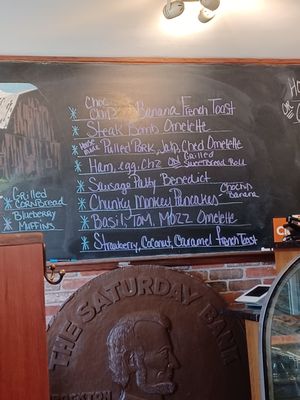 Choc
Chip Banana French Toast
* Steak Bomb Omelette
* House Made Pulled Pork, Jalp, Ched Omelette
* Ham, egg, chz on Grilled Sweetbread Roll
* Sausage Patty Benedict
* Chunky Monkey Pancakes Choc chip Banana
* Basil, Tom, Mozz Omelette
* Strawberry, Coconut, Caramel French Toast
* Grilled Cornbread
* Blueberry Muffins
THE SATURDAY